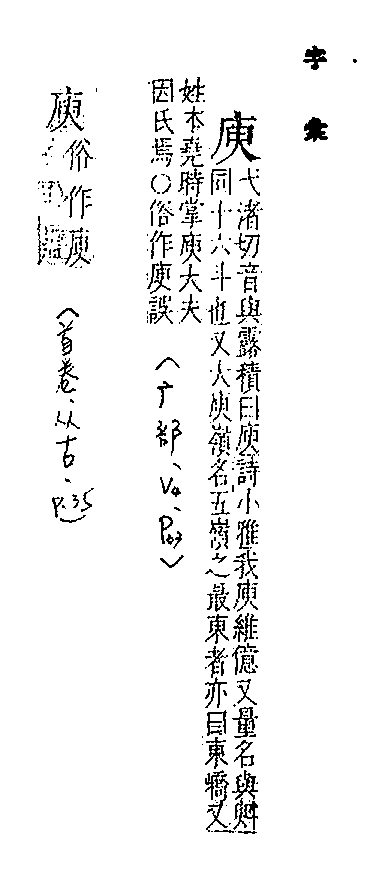 字彙
庾 弋渚切音與露積曰庾詩小雅我庾維億又量名與㪺
同十六斗也又大庾嶺名五嶺之最東者亦曰東嶠又
姓本堯時掌庾大夫
因氏焉○俗作庾誤
(广部、V4、P43)
庾俗作庾
(首卷、从古、P.35)